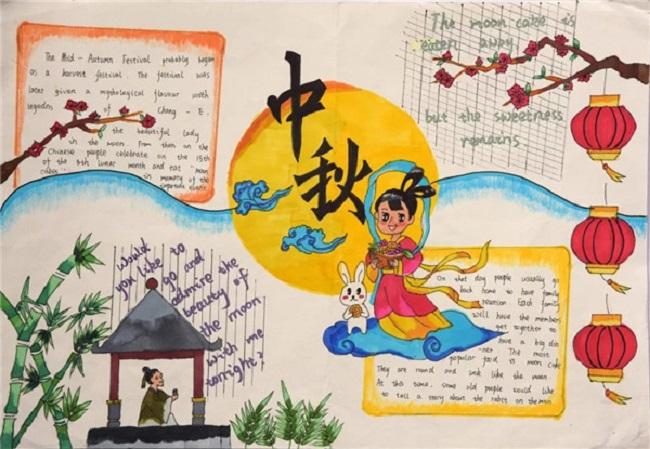 The Mid-Autumn Festival probably began
as a harvest festival. The festival was
later given a mythological flavour with
legends of Chang-E.
the beautiful lady
in the moon. From then on the
Chinese people celebrate on the 15th
of the 8th lunar month and eat moon
cakes in memory of the
中秋
The moon cake is
eaten away
but the sweetness
remains
Would
you like to
go and
admire the
beauty of
the moon
with me
tonight?
On that day people usually go
back home to have family
reunion Each family
will have the members
get together to
have a big din
ner The most
popular food is moon cake
They are round and look like the moon
At this time, some old people would like
to tell a story about the rabbit on the moon